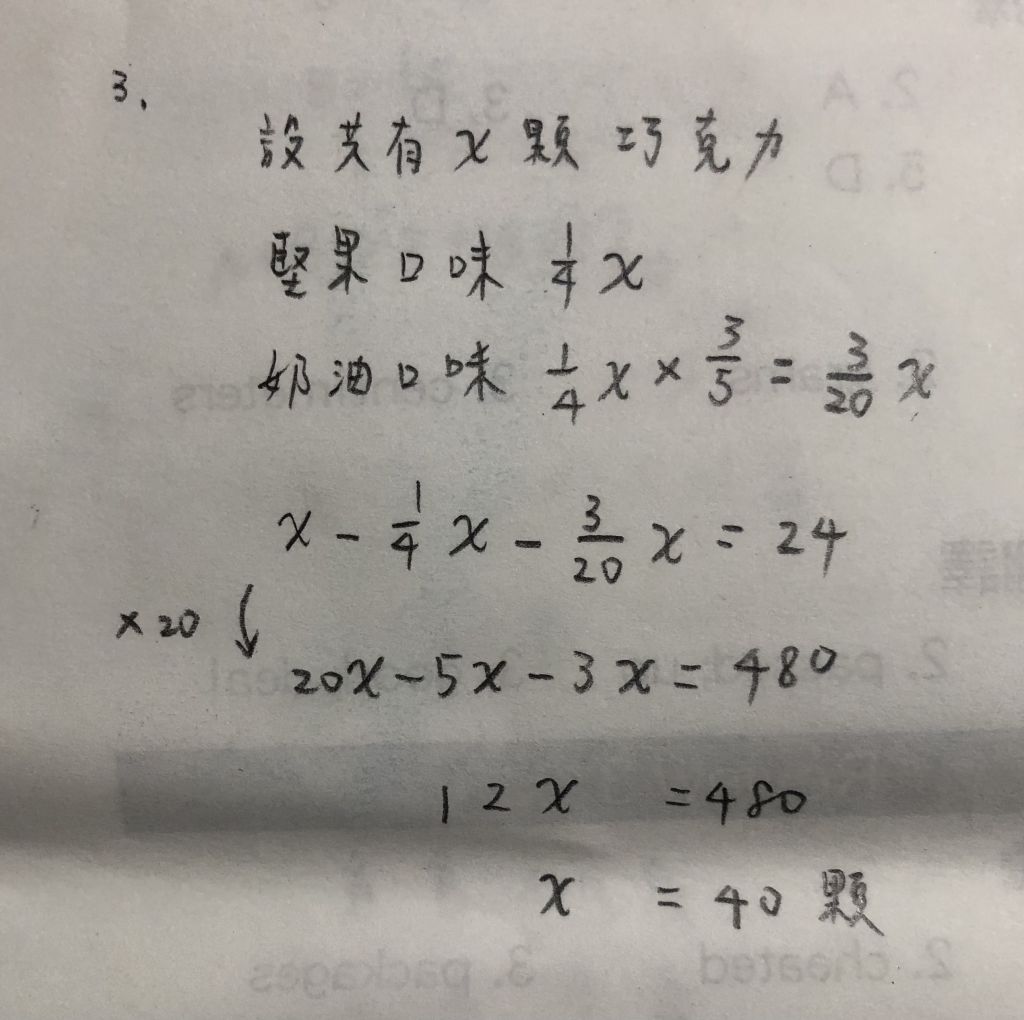 3.
設共有 x 顆巧克力
堅果口味 1/4 x
奶油口味 1/4 x × 3/5 = 3/20 x
x - 1/4 x - 3/20 x = 24
×20 ↓
20x - 5x - 3x = 480
12x = 480
x = 40 顆
2. A
3. D
5. D
2. cheated
3. packages